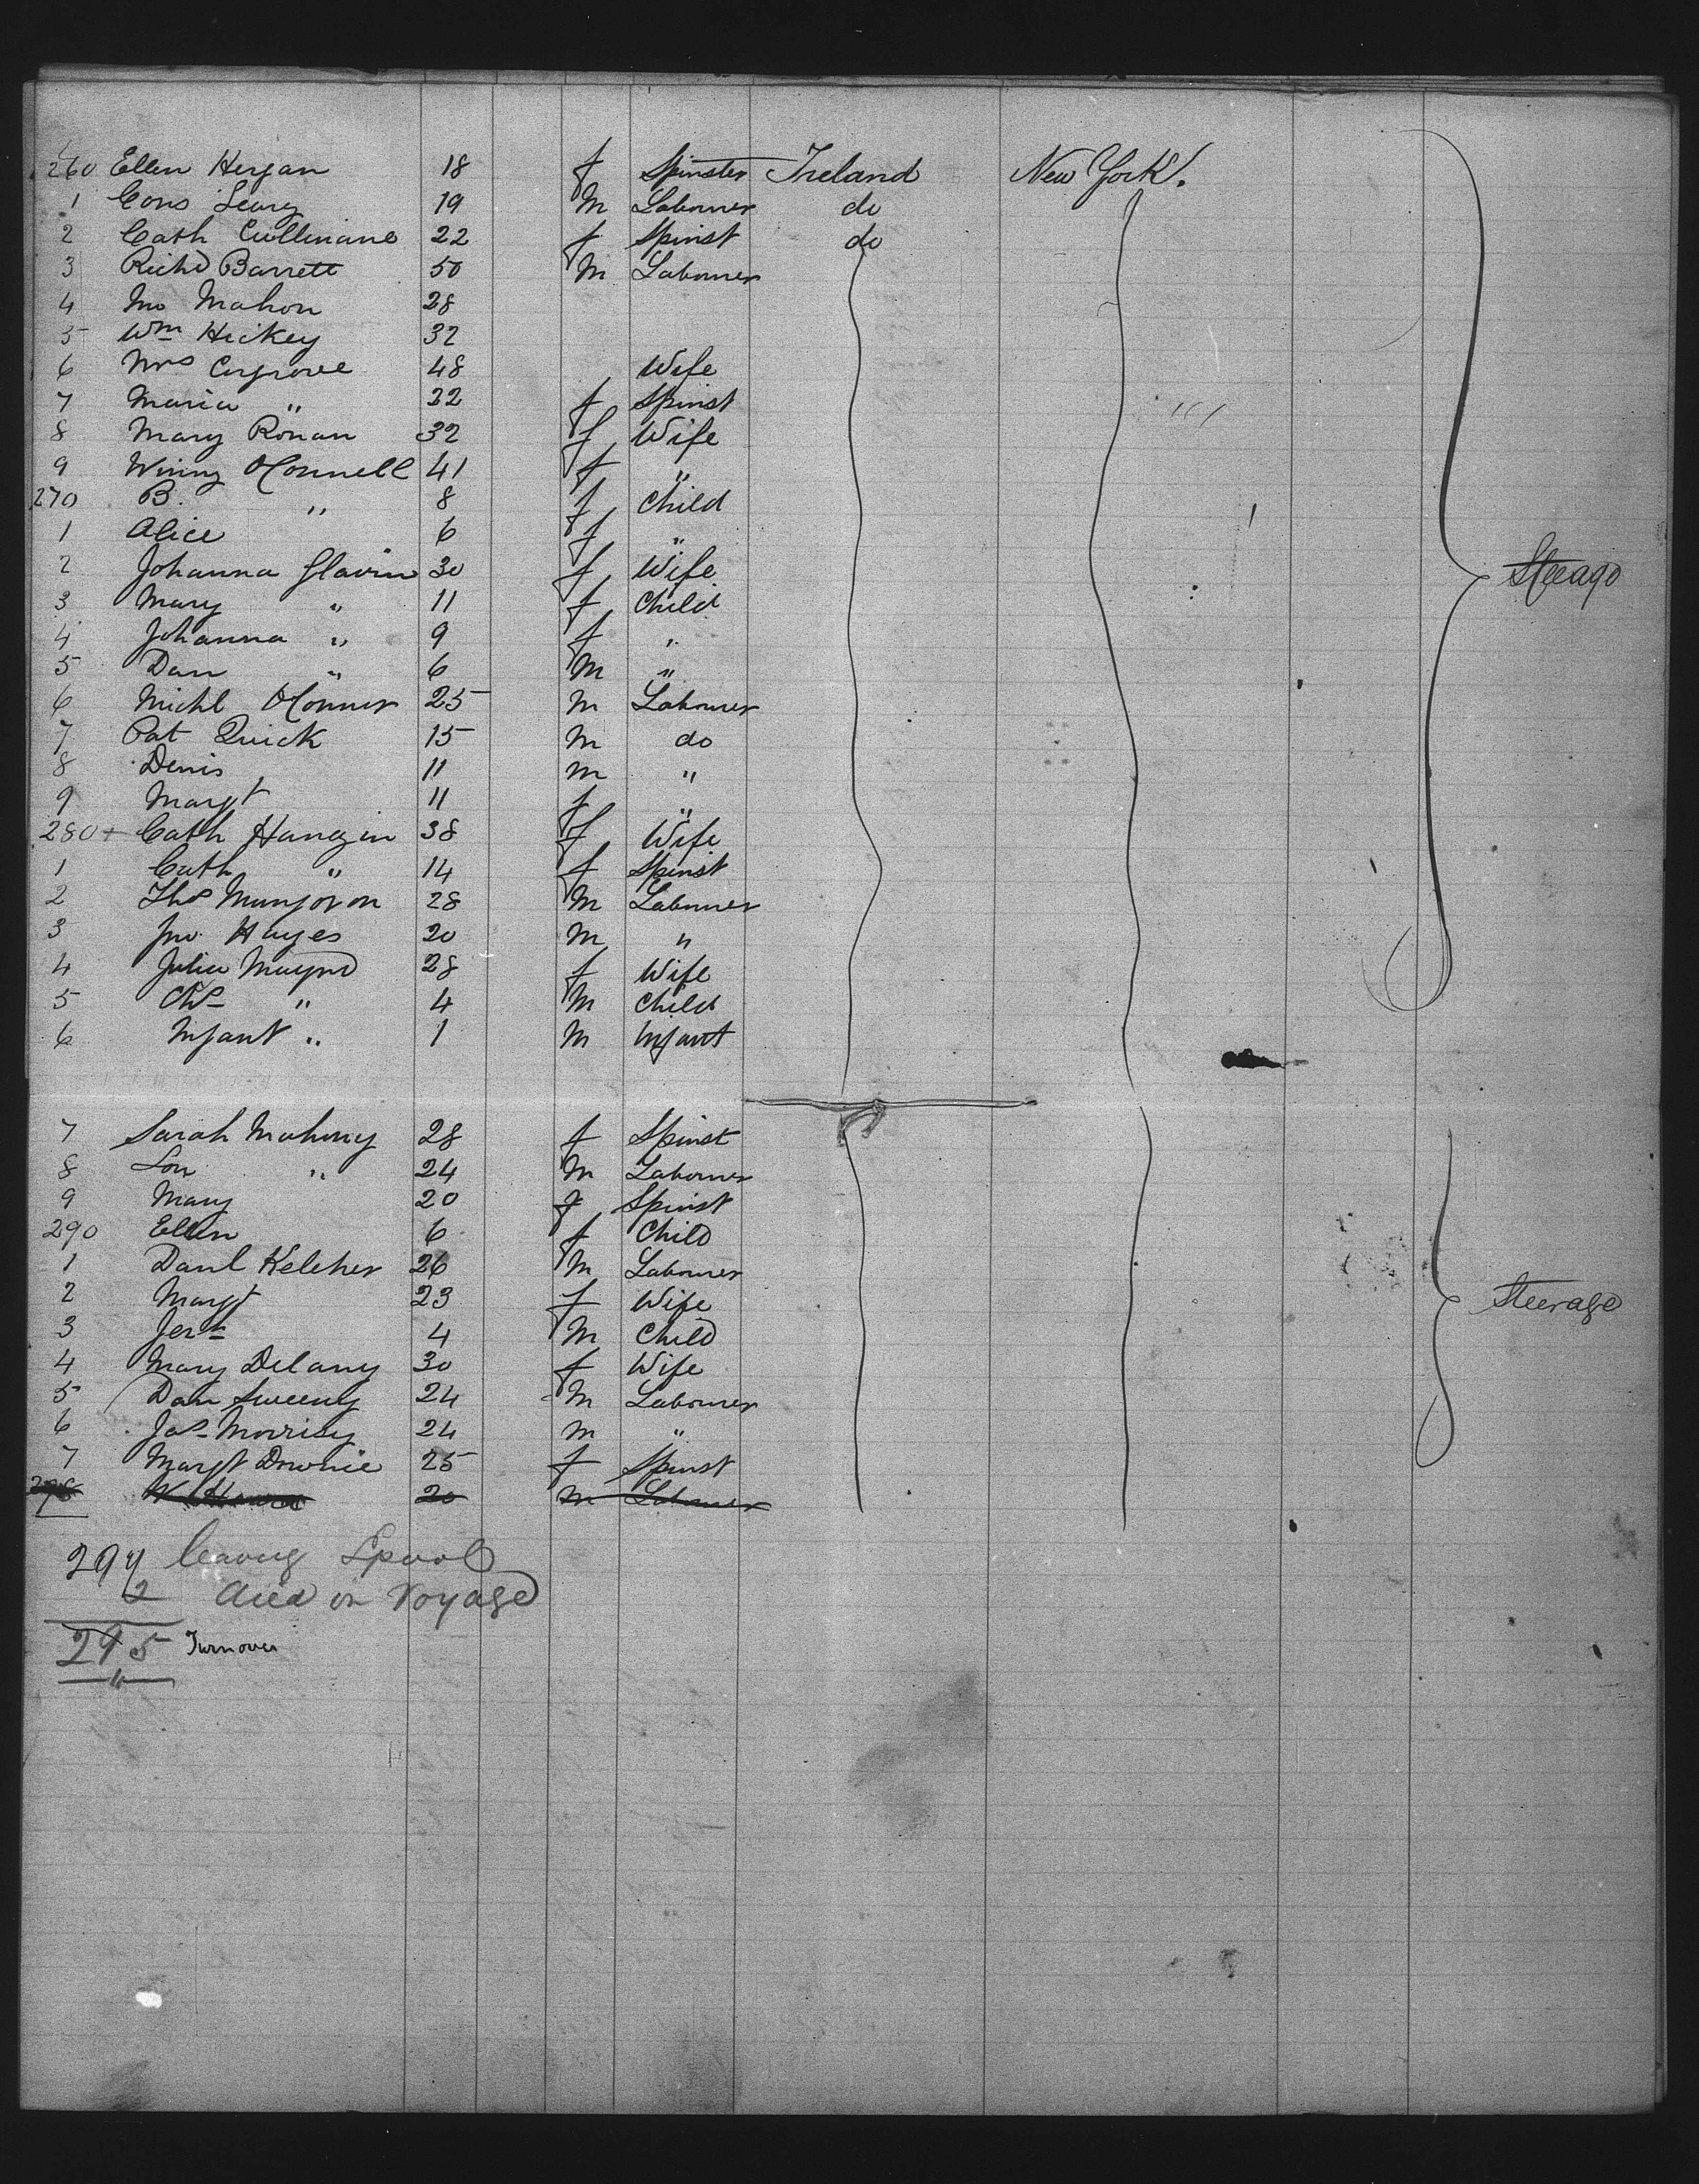 260 Ellen Hergan 18 f Spinster Ireland New York.
1 Cons Leary 19 M Labourer do
2 Cath Cullinane 22 f Spinst do
3 Richd Barrett 50 M Labourer
4 Mahon 28
5 Wm Hickey 32
6 Mrs Cosgrove 48 Wife
7 Maria " 22 f Spinst
8 Mary Ronan 32 f Wife
9 Winny OConnell 41 f "
270 B. " 8 f Child
1 Alice 6 f "
2 Johanna Glavin 30 f Wife
Steeage
3 Mary " 11 f Child
4 Johanna " 9 f "
5 Dan " 6 M "
6 Michl OConnor 25 M Labourer
7 Pat Quick 15 M do
8 Denis 11 M "
9 Margt 11 f "
280 + Cath Hangin 38 f Wife
1 Cath " 14 f Spinst
2 Thos 28 M Labourer
3 Jno Hayes 20 M "
4 Julia 28 f Wife
5 Chs " 4 M Child
6 Infant " 1 M Infant
7 Sarah Mahony 28 f Spinst
8 " 24 M Labourer
9 Mary 20 f Spinst
290 Ellen 6 f Child
1 Danl Keleher 26 M Labourer
2 Margt 23 f Wife
Steerage
3 Jerh 4 M Child
4 Mary Delany 30 f Wife
5 Dan Sweeny 24 M Labourer
6 Jas Morrisy 24 M "
7 Margt Downie 25 f Spinst
298 20 M Labourer
297 leaving Lpool
2 died on Voyage
295 Turnover